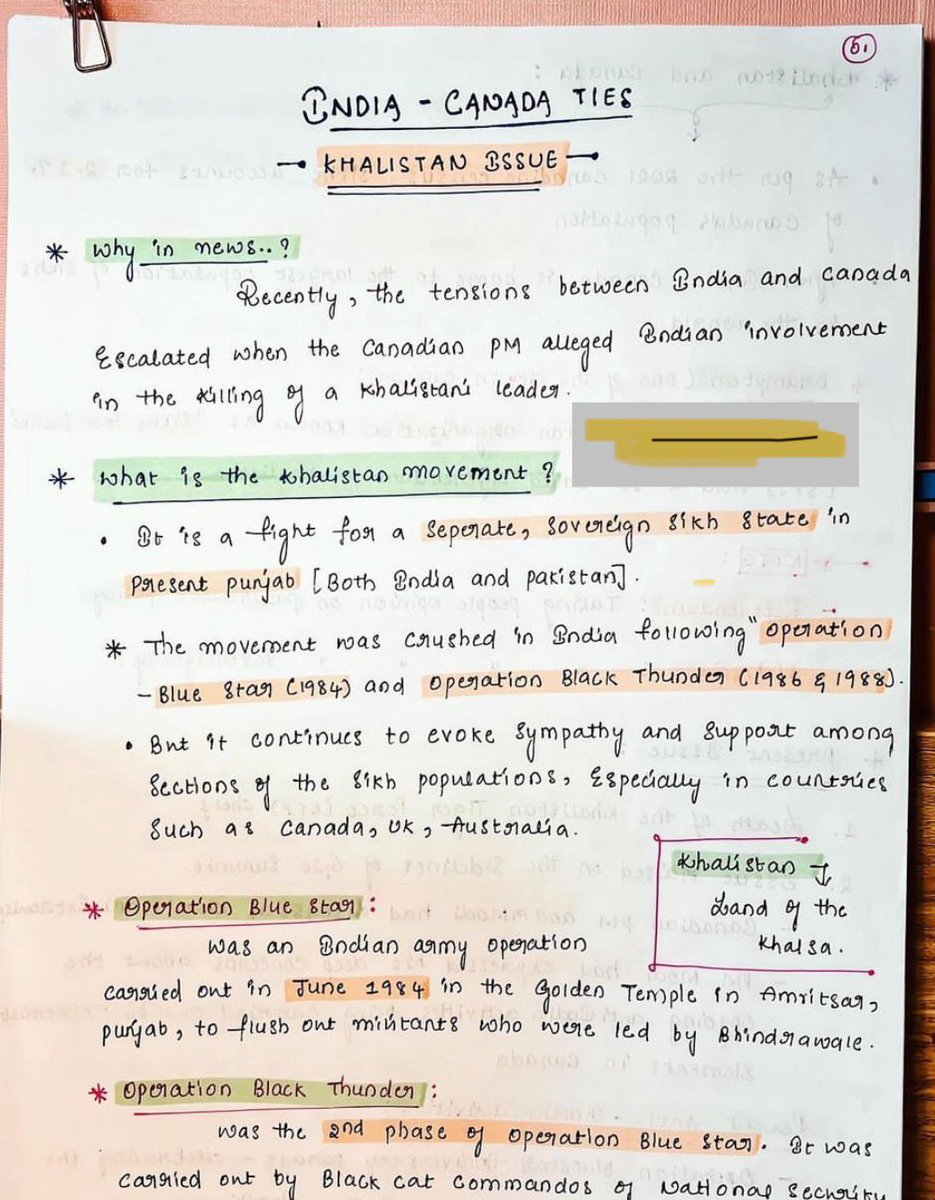 51
INDIA - CANADA TIES
KHALISTAN ISSUE
* Why in news..?
Recently, the tensions between India and Canada
Escalated when the Canadian PM alleged Indian involvement
in the killing of a Khalistani leader.
* What is the Khalistan movement?
• It is a fight for a seperate, sovereign Sikh State in
present punjab [Both India and pakistan].
* The movement was crushed in India following "operation
- Blue Star (1984) and Operation Black Thunder (1986 & 1988).
• But it continues to evoke sympathy and support among
sections of the sikh populations, Especially in countries
such as Canada, UK, Australia.
Khalistan ↓
Land of the
Khalsa.
* Operation Blue Star:
was an Indian army operation
carried out in June 1984 in the Golden Temple in Amritsar,
punjab, to flush out militants who were led by Bhindrawale.
* Operation Black Thunder:
was the 2nd phase of Operation Blue Star. It was
carried out by Black cat commandos of National Security